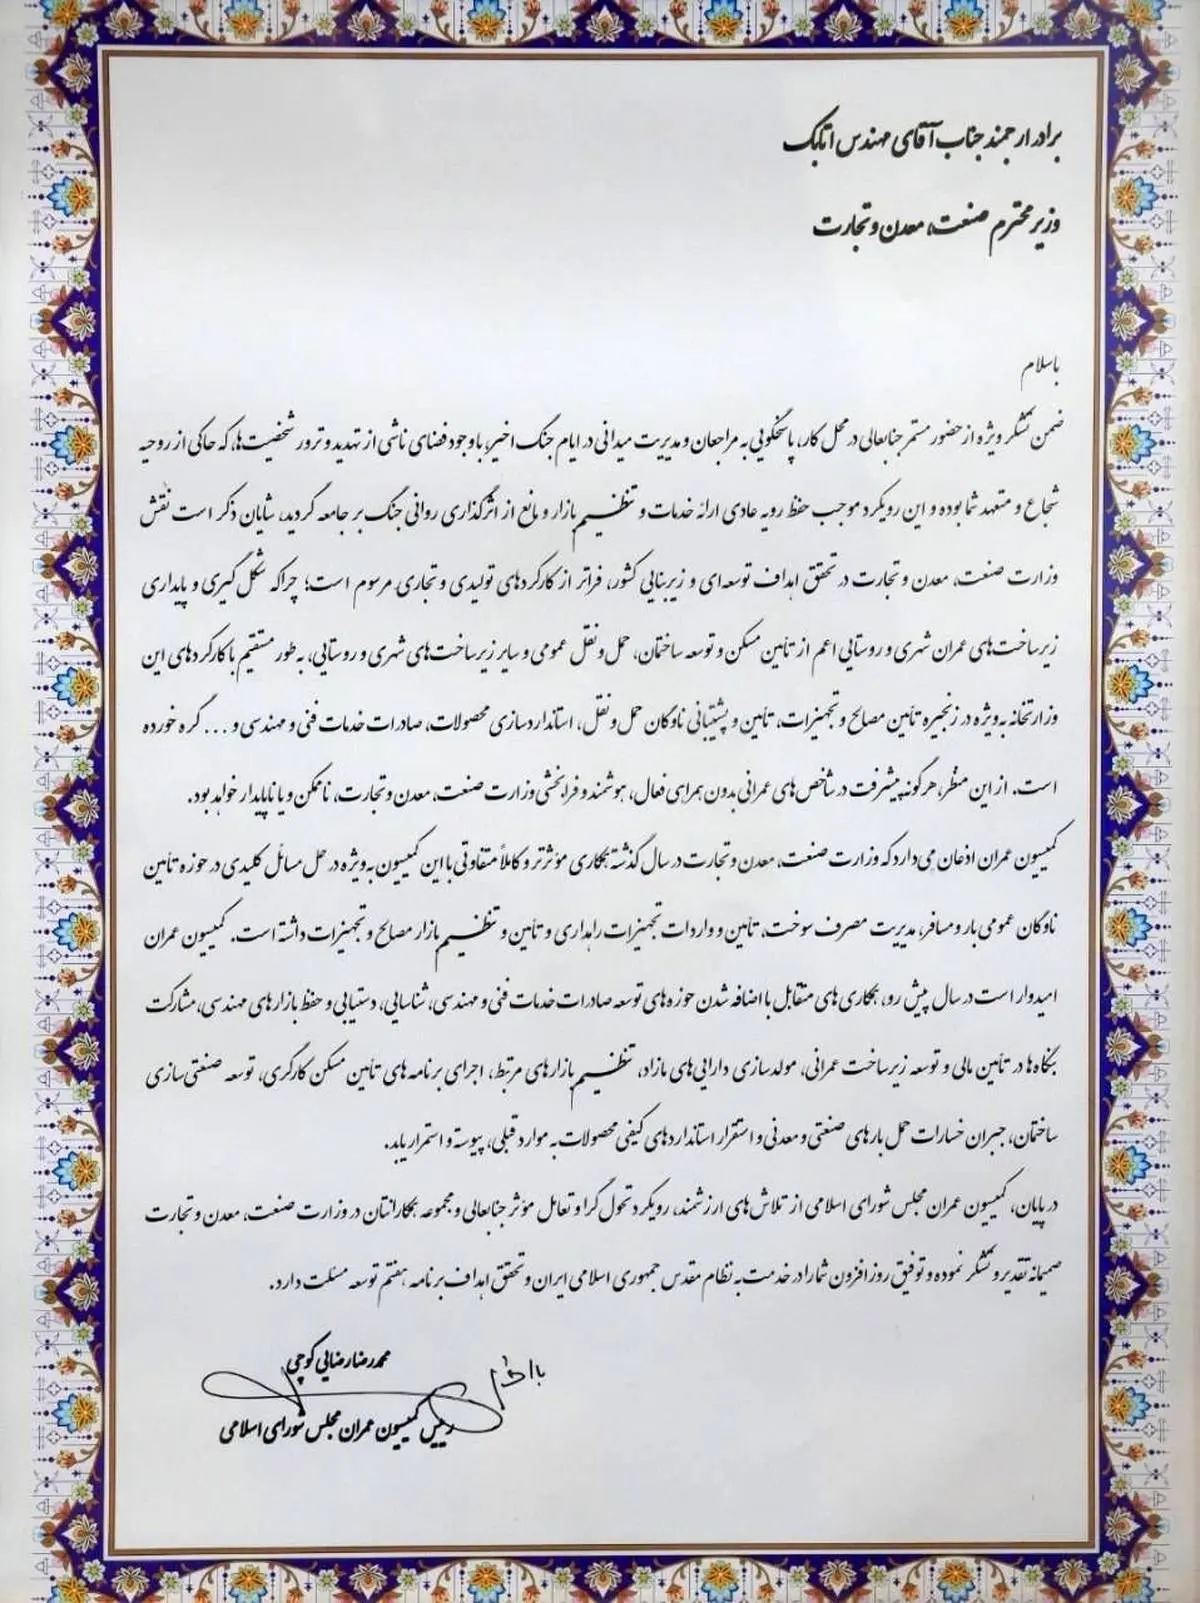 برادر ارجمند جناب آقای مهندس اتابک
وزیر محترم صنعت، معدن و تجارت
باسلام
ضمن تشکر ویژه از حضور مستمر جنابعالی در محل کار، پاسخگویی به مراجعان و مدیریت میدانی در ایام جنگ اخیر، با وجود فضای ناشی از تهدید و ترور شخصیت‌ها، که حاکی از روحیه
شجاع و متعهد شما بوده و این رویکرد موجب حفظ رویه عادی ارائه خدمات و تنظیم بازار و مانع از اثرگذاری روانی جنگ بر جامعه گردید، شایان ذکر است نقش
وزارت صنعت، معدن و تجارت در تحقق اهداف توسعه‌ای و زیربنایی کشور، فراتر از کارکردهای تولیدی و تجاری مرسوم است؛ چراکه شکل گیری و پایداری
زیرساخت‌های عمران شهری و روستایی اعم از تأمین مسکن و توسعه ساختمان، حمل و نقل عمومی و سایر زیرساخت‌های شهری و روستایی، به طور مستقیم با کارکردهای این
وزارتخانه به ویژه در زنجیره تأمین مصالح و تجهیزات، تأمین و پشتیبانی ناوگان حمل و نقل، استانداردسازی محصولات، صادرات خدمات فنی و مهندسی و ... گره خورده
است. از این منظر، هرگونه پیشرفت در شاخص‌های عمرانی بدون همراهی فعال، هوشمند و فرابخشی وزارت صنعت، معدن و تجارت، ناممکن و یا ناپایدار خواهد بود.
کمیسیون عمران اذعان می‌دارد که وزارت صنعت، معدن و تجارت در سال گذشته همکاری مؤثرتر و کاملاً متفاوتی با این کمیسیون به ویژه در حل مسائل کلیدی در حوزه تأمین
ناوگان عمومی بار و مسافر، مدیریت مصرف سوخت، تأمین و واردات تجهیزات راهداری و تأمین و تنظیم بازار مصالح و تجهیزات داشته است. کمیسیون عمران
امیدوار است در سال پیش رو، همکاری های متقابل با اضافه شدن حوزه های توسعه صادرات خدمات فنی و مهندسی، شناسایی، دستیابی و حفظ بازارهای مهندسی، مشارکت
بنگاه‌ها در تأمین مالی و توسعه زیرساخت عمرانی، مولدسازی دارایی‌های مازاد، تنظیم بازارهای مرتبط، اجرای برنامه های تأمین مسکن کارگری، توسعه صنعتی‌سازی
ساختمان، جبران خسارات حمل بارهای صنعتی و معدنی و استقرار استانداردهای کیفی محصولات به موارد قبلی، پیوسته و استمرار یابد.
در پایان، کمیسیون عمران مجلس شورای اسلامی از تلاش‌های ارزشمند، رویکرد تحول گرا و تعامل مؤثر جنابعالی و مجموعه همکارانتان در وزارت صنعت، معدن و تجارت
صمیمانه تقدیر و تشکر نموده و توفیق روزافزون شما را در خدمت به نظام مقدس جمهوری اسلامی ایران و تحقق اهداف برنامه هفتم توسعه مسئلت دارد.
محمدرضا رضایی کوچی
رییس کمیسیون عمران مجلس شورای اسلامی